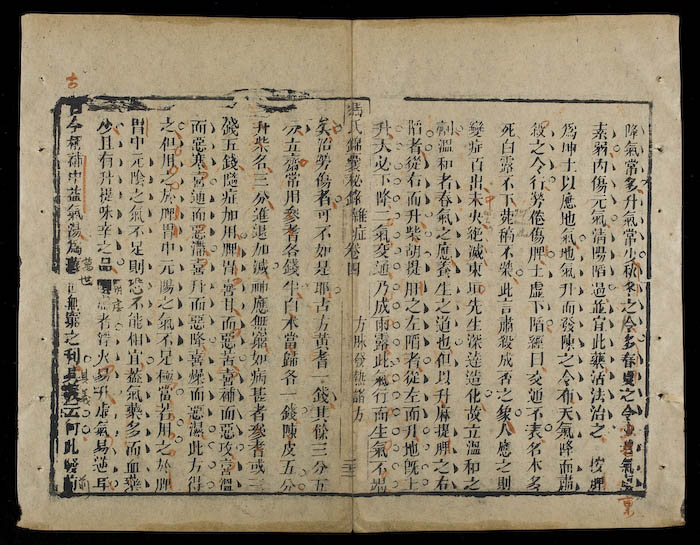 降氣常多升氣常少秋冬之令多春夏之令少
素弱內傷元氣清陽陷遏並宜此藥活法治之 按脾
為坤土以應地氣地氣升而發陳之令布天氣降而肅
殺之令行勞倦傷脾土虛下陷經曰交通不表名木多
死白露不下菀稿不榮此言肅殺成者之象人應之則
變症百出未火絕滅東垣先生深達造化故立溫和之
劑溫和者春氣之應養生之道也但以升麻提脾之右
陷者從右而升柴胡提用之左陷者從左而升地既上
升天必下降二氣交通乃成雨露此氣行而生氣不竭
馮氏錦囊秘錄雜症卷四
方脈發熱諸方
矣治勞傷者可不如是耶古方黃耆一錢其餘三分五
分立齋常用參耆各錢半白朮當歸各一錢陳皮五分
升柴各三分進退加減神應無窮如病甚者參耆或三
錢五錢隨症加用脾胃喜甘而惡苦喜補而惡攻喜溫
而惡寒喜通而惡滯喜升而惡降喜燥而惡濕此方得
之但用之於脾胃中元陽之氣不足極當若用之於脾
胃中元陰之氣不足則恐不能相宜蓋氣藥多而血藥
少且有升提味辛之品 者滯火易升虛氣易逆耳
古今稱補中益氣湯為萬世無窮之利其義云何此